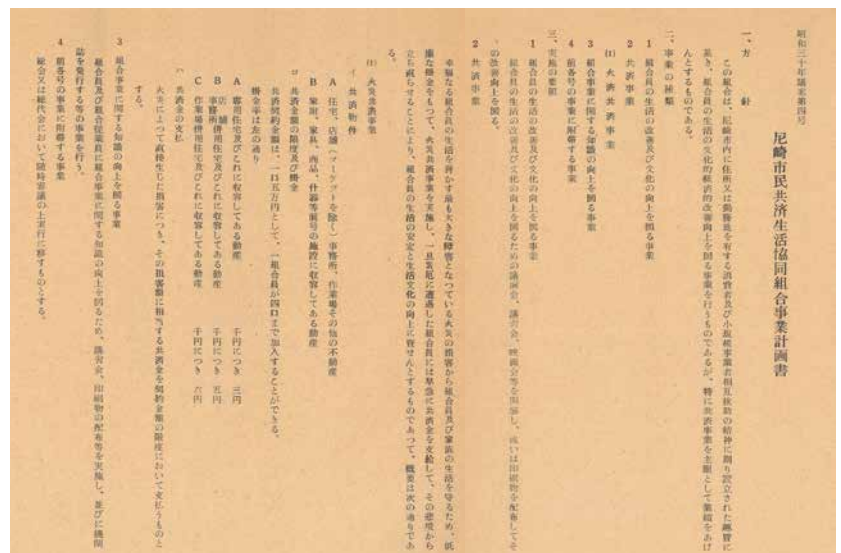 昭和三十年議案第四号
尼崎市民共済生活協同組合事業計画書
一、方 針
この組合は、尼崎市内に住所又は勤務地を有する消費者及び小規模事業者相互扶助の精神に則り設立された趣旨に
基き、組合員の生活の文化的経済的改善向上を図る事業を行うものであるが、特に共済事業を主眼として業績をあげ
んとするものである。
二、事業の種類
1 組合員の生活の改善及び文化の向上を図る事業
2 共済事業
(1) 火災共済事業
3 組合事業に関する知識の向上を図る事業
4 前各号の事業に附帯する事業
三、実施の要領
1 組合員の生活の改善及び文化の向上を図る事業
組合員の生活の改善及び文化の向上を図るための講演会、講習会、映画会等を開催し、或いは印刷物を配布してそ
の改善向上を図る。
2 共済事業
幸福なる組合員の生活を脅かす最も大きな障害となつている火災の損害から組合員及び家族の生活を守るため、低
廉な掛金をもつて、火災共済事業を実施し、一旦災厄に遭遇した組合員には早急に共済金を支給して、その悲境から
立ち直らせることにより、組合員の生活の安定と生活文化の向上に資せんとするものであつて、概要は次の通りであ
る。
(1) 火災共済事業
イ 共済物件
A 住宅、店舗(マーケットを除く)事務所、作業場その他の不動産
B 家財、家具、商品、什器等前号の施設に収容してある動産
ロ 共済金額の限度及び掛金
共済契約金額は、一口五万円として、一組合員が四口まで加入することができる。
掛金率は左の通り
A 専用住宅及びこれに収容してある動産 千円につき 三円
B 店舗事務所併用住宅及びこれに収容してある動産 千円につき 五円
C 作業場併用住宅及びこれに収容してある動産 千円につき 六円
ハ 共済金の支払
火災によつて直接生じた損害につき、その損害額に相当する共済金を契約金額の限度において支払うものと
する。
3 組合事業に関する知識の向上を図る事業
組合員及び組合従業員に組合事業に関する知識の向上を図るため、講習会、印刷物の配布等を実施し、並びに機関
誌を発行する等の事業を行う。
4 前各号の事業に附帯する事業
総会又は総代会において随時審議の上実行に移すものとする。